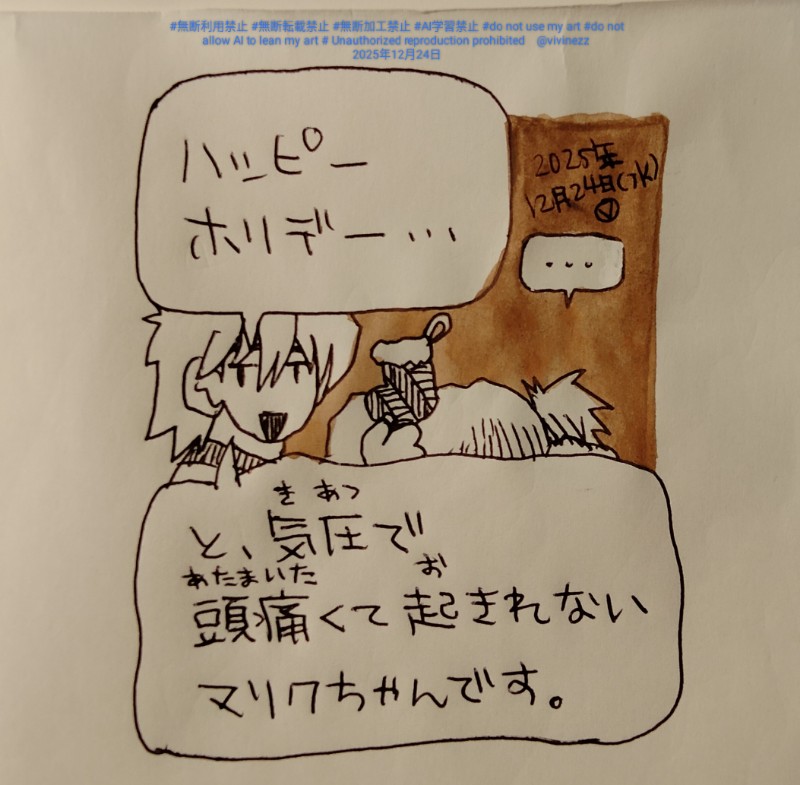 #無断利用禁止 #無断転載禁止 #無断加工禁止 #AI学習禁止 #do not use my art #do not
allow AI to lean my art # Unauthorized reproduction prohibited　@vivinezz
2025年12月24日
ハッピー
ホリデー…
2025年
12月24日(水)
...
と、気圧で
きあつ
頭痛くて起きれない
あたまいた お
マリクちゃんです。